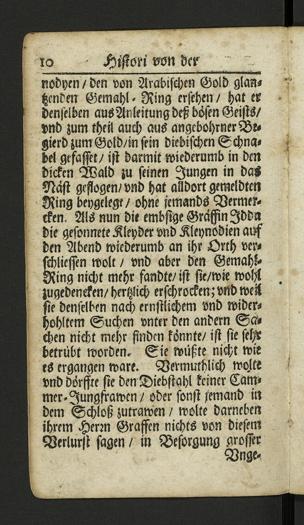 10 Histori von der
nodyen / den von Arabischen Gold glan-
tzenden Gemahl-Ring ersehen / hat er
denselben aus Anleitung deß bösen Geists /
vnd zum theil auch aus angebohrner Be-
gierd zum Gold / in sein diebischen Schna-
bel gefasset / ist darmit wiederumb in den
dicken Wald zu seinen Jungen in das
Näst geflogen / vnd hat alldort gemeldten
Ring beygelegt / ohne jemands Vermer-
cken. Als nun die embsige Gräffin Idda
die gesonnete Kleyder vnd Kleynodien auff
den Abend wiederumb an ihr Orth ver-
schliessen wolt / vnd aber den Gemahl-
Ring nicht mehr fandte / ist sie / wie wohl
zugedencken / hertzlich erschrocken; vnd weil
sie denselben nach ernstlichem vnd wider-
hohltem Suchen vnter den andern Sa-
chen nicht mehr finden könnte / ist sie sehr
betrübt worden. Sie wüßte nicht wie
es ergangen ware. Vermuthlich wolte
vnd dörffte sie den Diebstahl keiner Cam-
mer-Jungfrawen / oder sonst jemand in
dem Schloß zutrawen / wolte darneben
ihrem Herrn Graffen nichts von diesem
Verlurst sagen / in Besorgung grosser
Vnge-